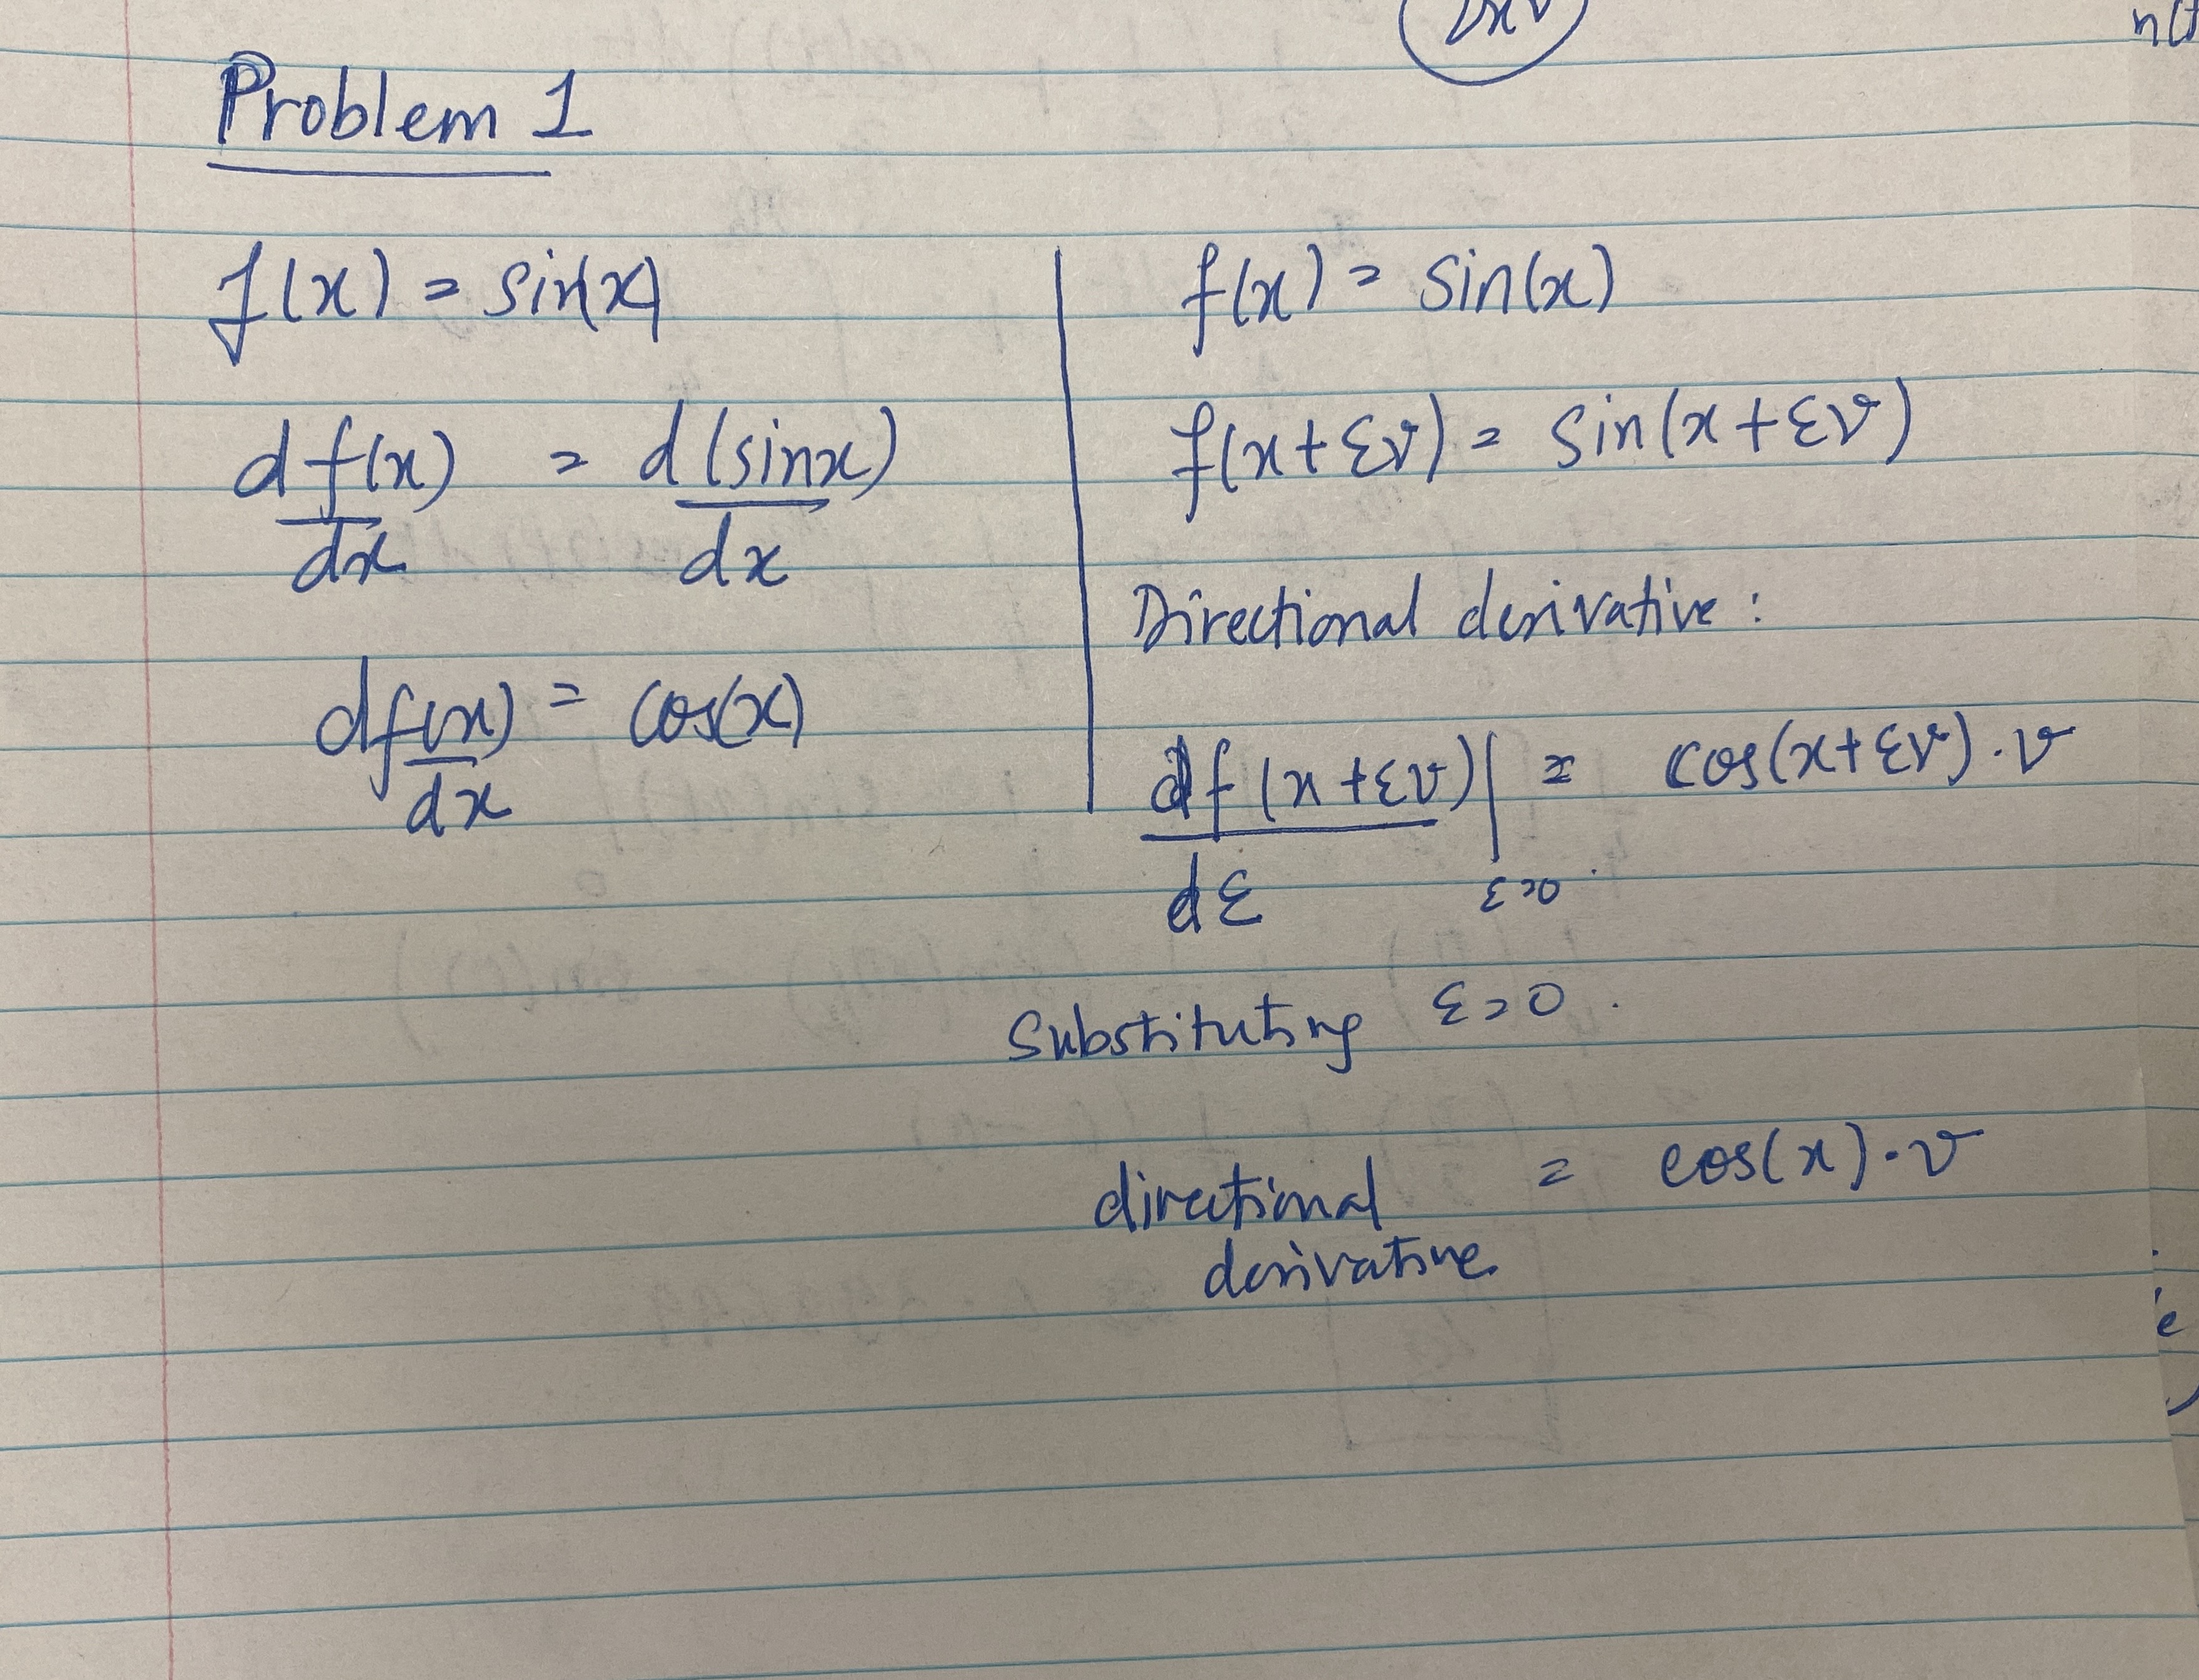 2xv
n(
Problem 1
f(x) = sin(x)
df(x) = d(sinx)
dx dx
df(x) = cos(x)
dx
f(x) = sin(x)
f(x+εv) = sin(x+εv)
Directional derivative:
df(x+εv)| = cos(x+εv).v
dε ε=0.
Substituting ε=0.
directional = cos(x).v
derivative
e